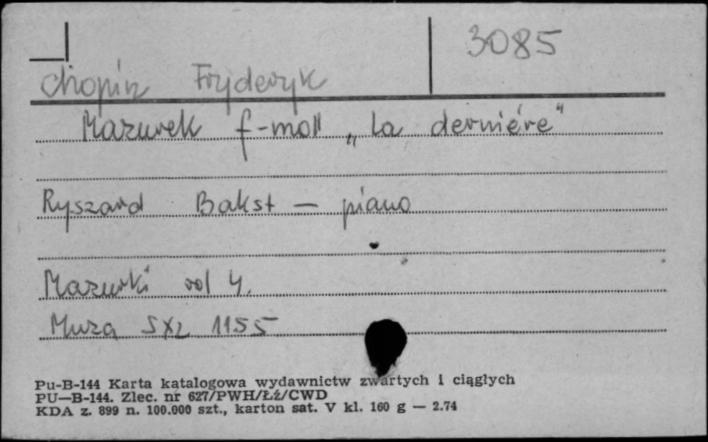 3085
Chopin Fryderyk
Mazurek f-moll „La derniére"
Ryszard Bakst – piano
Mazurki vol 4.
Muza SXL 1155
Pu-B-144 Karta katalogowa wydawnictw zwartych i ciągłych
PU—B-144. Zlec. nr 627/PWH/Łź/CWD
KDA z. 899 n. 100.000 szt., karton sat. V kl. 160 g — 2.74